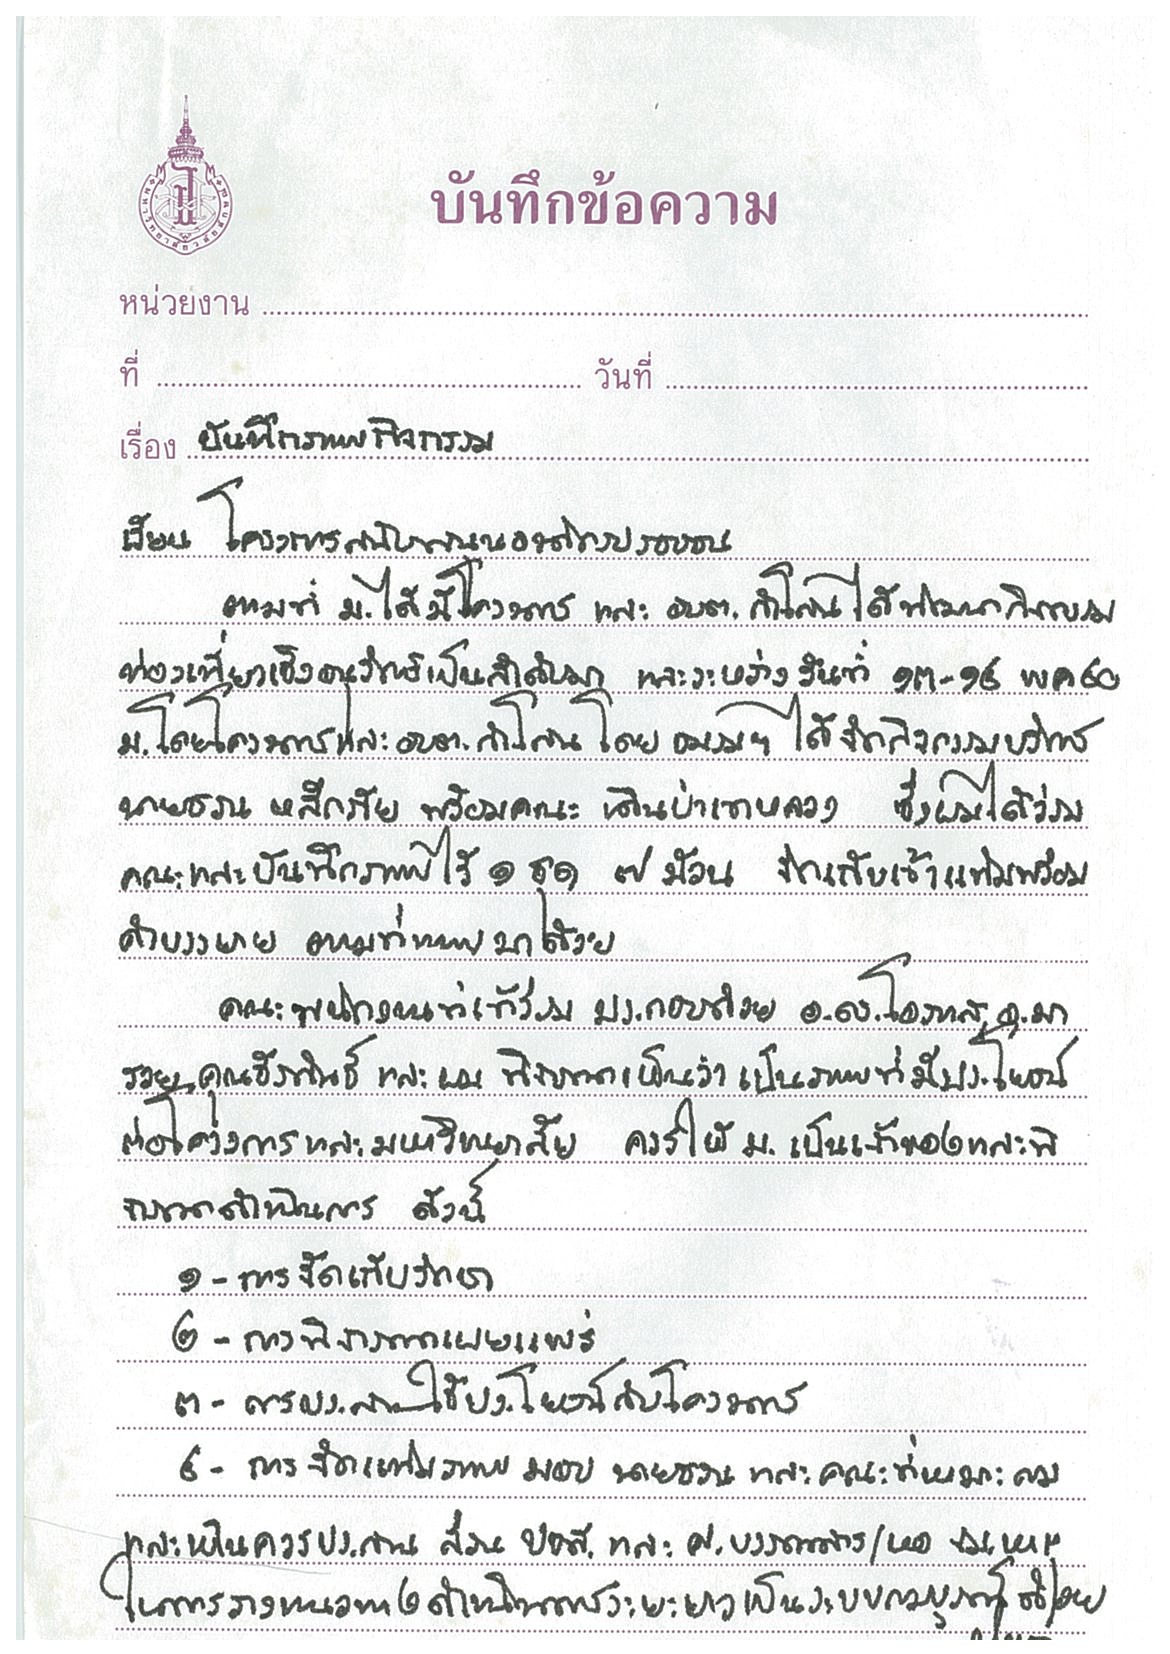 มหาวิทยาลัยวลัยลักษณ์
บันทึกข้อความ
หน่วยงาน
ที่ วันที่
เรื่อง บันทึกภาพกิจกรรม
เรียน โครงการ
ตามที่ ม.ได้มีโครงการ และ อบต. กำโลน ได้พัฒนากิจกรรม
ท่องเที่ยวเชิงอนุรักษ์เป็นลำดับมา และระหว่างวันที่ ๑๓-๑๕ พค ๔๐
ม.โดยโครงการและ อบต. กำโลน โดย ชมรมฯ ได้จัดกิจกรรมบริการ
นายชวน หลีกภัย พร้อมคณะ เดินป่าเขาหลวง ซึ่งผมได้ร่วม
คณะและบันทึกภาพไว้ ๑ ชุด ๗ ม้วน จัดเก็บเข้าแฟ้มพร้อม
คำบรรยาย ตามที่แนบมาด้วย
คณะพนักงานที่เข้าร่วม ประกอบด้วย อ.ดร.
คุณธีรพันธ์ และ ผม พิจารณาเห็นว่า เป็นภาพที่มีประโยชน์
ต่อโครงการและมหาวิทยาลัย ควรให้ ม. เป็นเจ้าของและพิ
จารณาดำเนินการ ดังนี้
๑ - การจัดเก็บรักษา
๒ - การพิจารณาเผยแพร่
๓ - การประสานใช้ประโยชน์กับโครงการ
๔ - การจัดแฟ้มภาพ มอบ นายชวน และ คณะที่เหมาะสม
และเห็นควรประสาน ส่วน และ ศ.บรรณสาร/หอ จมเหตุ
ในการวางแนวทางดำเนินการระยะยาวเป็นระบบสมบูรณ์ ด้วย